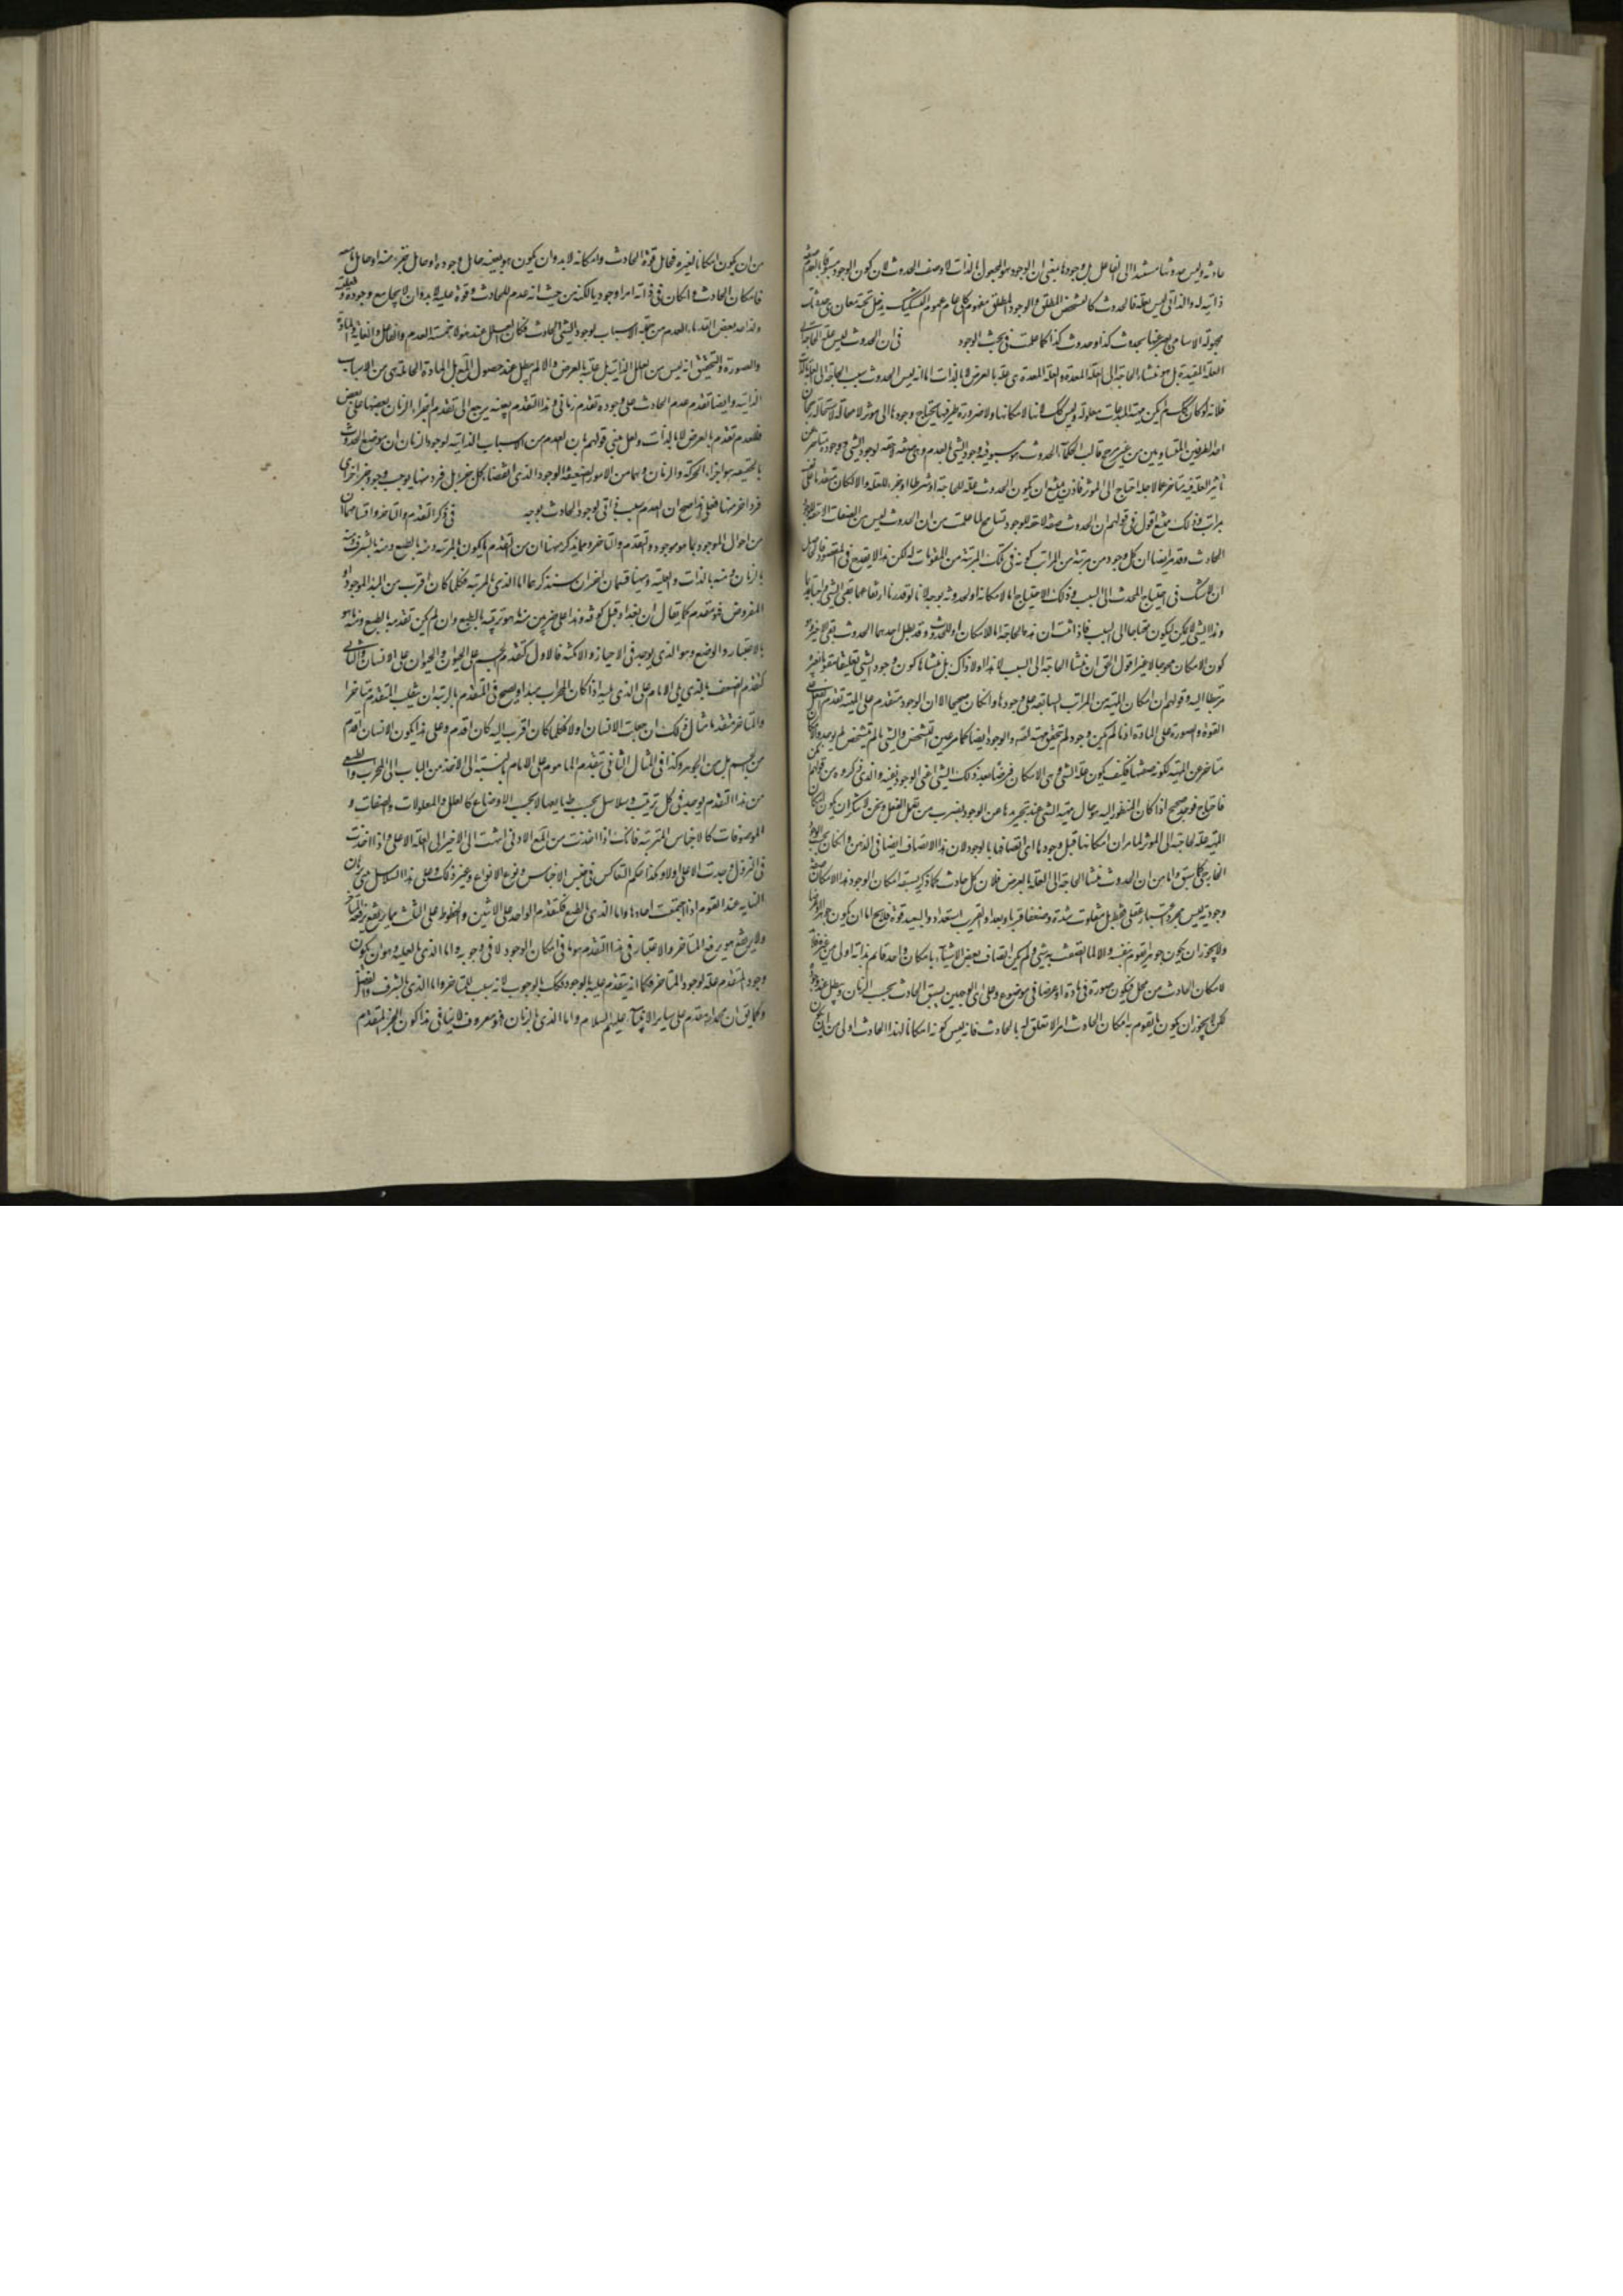 حادثه وليس حدوثها مستندا الى الفاعل بل وجودها بمعنى ان الوجود هو المجعول بالذات لا وصف الحدوث لان كون الوجود مسبوقا بالعدم صفة
ذاتية له والذاتي ليس بعلة فالحدوث كالتشخص المطلق والوجود المطلق مفهوم كلي عام عموم التشكيك يدخل تحته معان هي حدوثات
مجهولة الاسامي يعبر عنها بحدوث كذا وحدوث كذا كما علمت في بحث الوجود في ان الحدوث ليس علة الحاجة الى
العلة المفيدة بل هو منشاء الحاجة الى العلة المعدة والعلة المعدة هي علة بالعرض لا بالذات اما انه ليس الحدوث سبب الحاجة الى العلة بالذات
فلانه لو كان كك لم يكن مهية المبدعات معلولة وليس كك فانها لامكانها ولا ضرورة طرفيها يحتاج وجودها الى مؤثر لا محالة لاستحالة رجحان
احد الطرفين المتساويين من غير مرجح قالت الحكماء الحدوث هو مسبوقية وجود الشي بالعدم وهي صفة لاحقة لوجود الشي ووجوده متاخر عن
تاثير العلة فيه متاخر عما لاجله احتاج الى المؤثر فاذن يمتنع ان يكون الحدوث علة للحاجة او شرطا او جزء للعلة والا لكان متقدما على نفسه
بمراتب وذلك ممتنع اقول في قولهم ان الحدوث صفة لاحقة للوجود تسامح لما علمت من ان الحدوث ليس من الصفات اللاحقة لوجود
الحادث وقد مر ايضا ان كل وجود من مرتبة من المراتب كونه في تلك المرتبة من المقومات له لكن هذا لا يقدح في المقصود
ان لا شك في احتياج المحدث الى السبب وذلك الاحتياج اما لامكانه او لحدوثه بوجه لانا لو قدرنا ارتفاعهما بقي الشي واجبا قديما
وهذا الشي لا يمكن ليكون محتاجا الى السبب فاذا ثبت ان هذه الحاجة اما للامكان او للحدوث وقد بطل احدهما الحدوث بقي الاخر وهو
كون الامكان محوجا لا غير اقول الحق ان منشا الحاجة الى السبب لا هذا ولا ذاك بل منشاها كون وجود الشي تعليقيا متقوما بغيره
مرتبطا اليه وقولهم ان امكان المهية من المراتب السابقة على وجودها وان كان صحيحا الا ان الوجود متقدم على المهية تقدم الفعل على
القوة والصورة على المادة اذ ما لم يكن وجود لم تتحقق مهية اصلا والوجود ايضا كما مر عين التشخص والشي ما لم يتشخص لم يوجد والامكان
متاخر عن المهية لكونه صفتها فكيف يكون علة الشي وهي الامكان فرضا بعد ذلك الشي اعني الوجود نفسه والذي ذكروه من قولهم امكن
فاحتاج فوجد صحيح اذا كان المنظور اليه هو حال مهية الشي عند تجريدها عن الوجود بضرب من تعمل العقل ونحن لا ننكر ان يكون امكان
المهية علة لحاجته الى المؤثر لما مر ان امكانها قبل وجودها اي اتصافها بالوجود لان هذا الاتصاف ايضا في الذهن وان كان بحسب الوجود
الخارجي كما سبق واما من ان الحدوث منشا الحاجة الى العلة بالعرض فلان كل حادث كما ذكر يسبقه امكان الوجود وهذا الامكان صفة
وجودية ليس مجرد اعتبار عقلي فقط بل يتفاوت شدة وضعفا قربا وبعدا والقريب استعداد والبعيد قوة فلا يخ اما ان يكون جوهرا او عرضا
ولا يجوز ان يكون جوهرا قائما بنفسه والا لما اتصف به شي ولم يكن اتصاف بعض الاشياء بامكان واحد قائم بذاته اولى من غيره فلا بد
لامكان الحادث من محل فيكون صورة في مادة او عرضا في موضوع وعلى اي الوجهين يسبق الحادث بحسب الزمان ويبطل عند وجوده
لكن لا يجوز ان يكون ما يقوم به امكان الحادث امرا لا تعلق له بالحادث فانه ليس كونه امكانا لهذا الحادث اولى من ان يكون
من ان يكون امكانا لغيره فحامل قوة الحادث وامكانه لا بد وان يكون هو بعينه حامل وجوده او حامل جزء منه او حامل ما معه
فامكان الحادث وان كان في ذاته امرا وجوديا لكنه من حيث انه عدم للحادث وقوة عليه لا بد وان لا يجامع وجوده وفعليته
ولذا عد بعض القدماء العدم من جملة الاسباب لوجود الشي الحادث فكان العلل عند هؤلاء خمسة العدم والفاعل والغاية والمادة
والصورة والتحقيق انه ليس من العلل الذاتية بل علة بالعرض والا لم يبطل عند حصول المعلول بل المادة الحاملة هي من الاسباب
الذاتية وايضا تقدم عدم الحادث على وجوده تقدم زماني وهذا التقدم بعينه يرجع الى تقدم اجزاء الزمان بعضها على بعض
فللعدم تقدم بالعرض لا بالذات ولعل مبنى قولهم بان العدم من الاسباب الذاتية لوجود الزمان ان موضوع الحدوث
بالحقيقة هو اجزاء الحركة والزمان وهما من الامور الضعيفة الوجود الذي انقضاء كل جزء بل فرد منها يوجب وجود جزء اخر او
فرد اخر منها فعلى هذا صح ان العدم سبب ذاتي لوجود الحادث بوجه في ذكر التقدم والتاخر واقسامهما ان
من احوال الموجود بما هو موجود التقدم والتاخر ومما يذكر ههنا ان من التقدم ما يكون بالمرتبة ومنه بالطبع ومنه بالشرف ومنه
بالزمان ومنه بالذات والعلية وههنا قسمان اخران سنذكرهما اما الذي بالمرتبة فكلما كان اقرب من المبدا الموجود او
المفروض فهو متقدم كما يقال ان بغداد قبل كوفة وهذا على ضربين منه ما هو ترتيبه بالطبع وان لم يكن تقدمه بالطبع ومنه ما هو
بالاعتبار والوضع وهو الذي يوجد في الاحياز والامكنة فالاول كتقدم الجسم على الحيوان والحيوان على الانسان والثاني
كتقدم الصف الذي يلي الامام على الذي يليه اذا كان المحراب مبدا ويصح في المتقدم بالرتبة ان ينقلب المتقدم متاخرا
والمتاخر متقدما مثال ذلك ان جعلت الانسان اولا فكلما كان اقرب اليه كان اقدم وعلى هذا يكون الانسان اقدم
من الجسم بل من الجوهر وكذا في المثال الثاني يتقدم الماموم على الامام بالنسبة الى الاخذ من الباب الى المحراب والطبعي
من هذا التقدم يوجد في كل ترتيب وسلاسل بحسب طبايعها لا بحسب الاوضاع كالعلل والمعلولات والصفات و
الموصوفات كالاجناس المترتبة فانك اذا اخذت من المع الادنى انتهيت الى الاخير الى العلة الاعلى واذا اخذت
في النزول وجدت الاعلى اولا وهكذا حكم التعاكس في جنس الاجناس ونوع الانواع وغير ذلك وعلى هذا السلاسل مبنى برهان
النهاية عند القوم اذا اجتمعت احادها واما الذي بالطبع فكتقدم الواحد على الاثنين والخطوط على المثلث مما يرتفع برفعه المتاخر
ولا يرتفع هو برفع المتاخر والاعتبار في هذا التقدم هو ما في امكان الوجود لا في وجوبه واما الذي بالعلية وهو ان يكون
وجود المتقدم علة لوجود المتاخر فكما انه يتقدم عليه بالوجود فكك بالوجوب لانه سبب للمتاخر واما الذي بالشرف والفضل
وكما يق ان محمدا متقدم على ساير الانبياء عليهم السلام واما الذي بالزمان فهو معروف لا ينافي هذا كون الجزء المتقدم